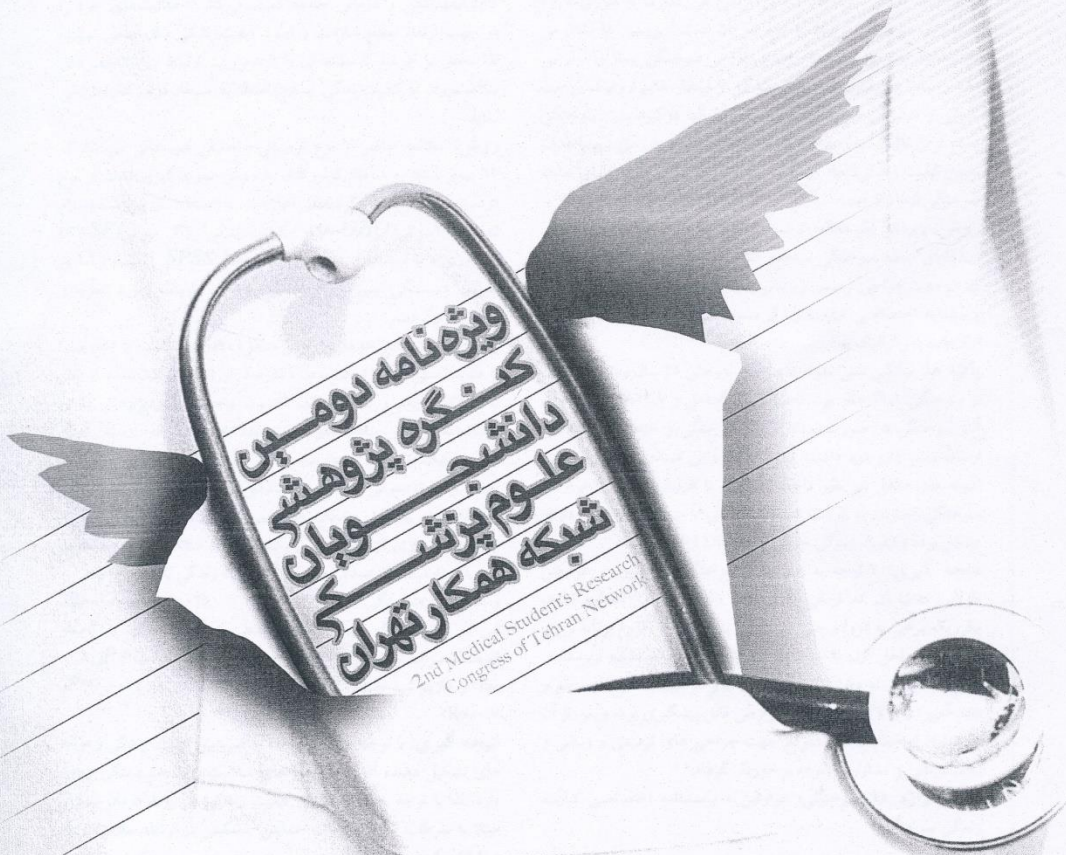 ویژه‌نامه دومین
کنگره پژوهشی
دانشجویان
علوم پزشکی
شبکه همکار تهران
2nd Medical Student's Research
Congress of Tehran Network